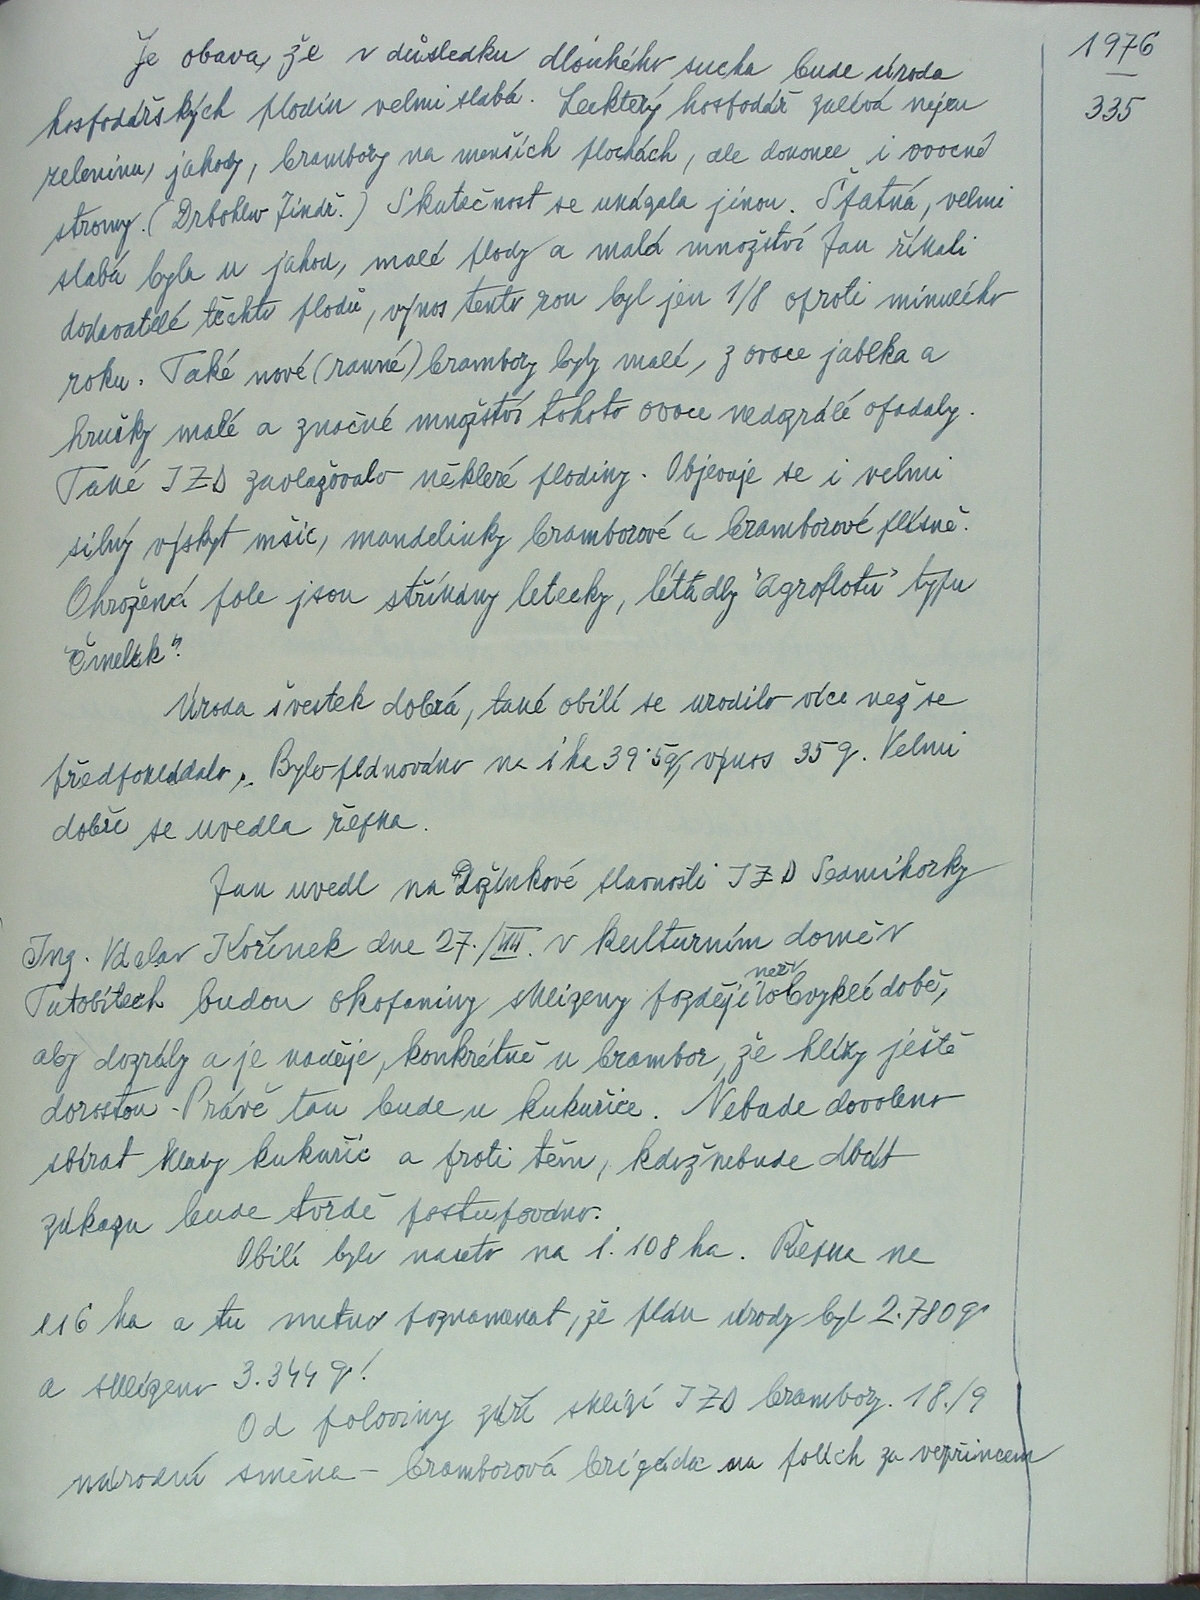 1976
335
Je obava, že v důsledku dlouhého sucha bude úroda
hospodářských plodin velmi slabá. Leckterý hospodář zalévá nejen
zeleninu, jahody, brambory na menších plochách, ale dokonce i ovocné
stromy. (Drbohlav Jindř.) Skutečnost se ukázala jinou. Špatná, velmi
slabá byla u jahod, malé plody a malá množství Jak říkali
dodavatelé těchto plodů, výnos tento rok byl jen 1/8 oproti minulého
roku. Také nové (ranné) brambory byly malé, z ovoce jablka a
hrušky malé a značné množství tohoto ovoce nedozrálé opadaly.
Také JZD zavlažovalo některé plodiny. Objevuje se i velmi
silný výskyt mšic, mandelinky bramborové a bramborové plísně.
Ohrožená pole jsou stříkány letecky, létadly "Agroflotu" typu
"Čmelák".
Úroda švestek dobrá, také obilí se urodilo více než se
předpokládalo. Bylo plánováno na 1 ha 39·5q, výnos 35 q. Velmi
dobře se uvedla řepka.
Jak uvedl na Dožínkové slavnosti JZD Sedmihorky
Ing. Václav Kořínek dne 27./VIII. v kulturním domě v
Tatobitech budou okopaniny sklizeny později než v obvyklé době,
aby dozrály a je naděje, konkrétně u brambor, že hlízy ještě
dorostou - Právě tak bude u kukuřice. Nebude dovoleno
sbírat klasy kukuřic a proti těm, kdož nebude dbát
zákazu bude tvrdě postupováno.
Obilí bylo naseto na 1.108 ha. Řepka na
116 ha a tu nutno poznamenat, že plán úrody byl 2.780 q
a sklizeno 3.344 q!
Od poloviny září sklízí JZD brambory. 18./9
národní směna – bramborová brigáda na polích za vepřincem